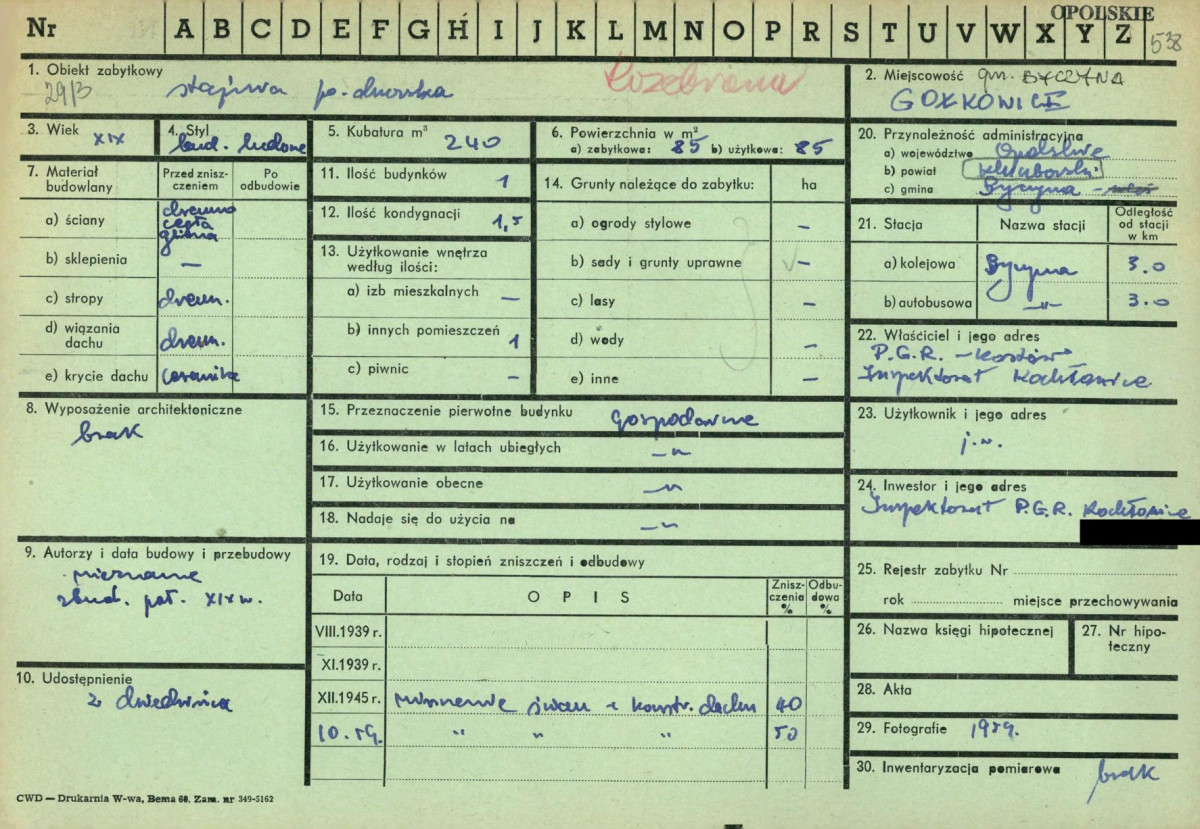 OPOLSKIE
Nr A B C D E F G H I J K L M N O P R S T U V W X Y Z 538
1. Obiekt zabytkowy
29/3 stajnia po-dworska
Rozebrana
2. Miejscowość gm. BYCZYNA
GOŁKOWICE
3. Wiek XIX
4. Styl
bud. ludowe
5. Kubatura m³ 240
6. Powierzchnia w m²
a) zabytkowa: 85 b) użytkowa: 85
20. Przynależność administracyjna
a) województwo Opolskie
b) powiat kluborski
c) gmina Byczyna -
7. Materiał budowlany
Przed zniszczeniem
Po odbudowie
a) ściany drewno
cegła
glina
b) sklepienia —
c) stropy drewn.
d) wiązania dachu drewn.
e) krycie dachu ceramika
11. Ilość budynków 1
12. Ilość kondygnacji 1,5
13. Użytkowanie wnętrza
według ilości:
a) izb mieszkalnych —
b) innych pomieszczeń 1
c) piwnic —
14. Grunty należące do zabytku: ha
a) ogrody stylowe —
b) sady i grunty uprawne —
c) lasy —
d) wody —
e) inne —
21. Stacja Nazwa stacji Odległość od stacji w km
a) kolejowa Byczyna 3.0
b) autobusowa —"— 3.0
22. Właściciel i jego adres
P.G.R. - Kostów
Inspektorat Kochłowice
8. Wyposażenie architektoniczne
brak
15. Przeznaczenie pierwotne budynku gospodarcze
16. Użytkowanie w latach ubiegłych —"
17. Użytkowanie obecne —"
18. Nadaje się do użycia na —"
23. Użytkownik i jego adres
j.w.
24. Inwestor i jego adres
Inspektorat P.G.R. Kochłowice
9. Autorzy i data budowy i przebudowy
nieznane
zbud. poł. XIX w.
19. Data, rodzaj i stopień zniszczeń i odbudowy
Data OPIS Zniszczenia % Odbudowa %
VIII.1939 r.
XI.1939 r.
XII.1945 r. zniszczenie ścian i konstr. dachu 40
10.59. " " " 50
10. Udostępnienie
z dziedzińca
25. Rejestr zabytku Nr
rok miejsce przechowywania
26. Nazwa księgi hipotecznej
27. Nr hipoteczny
28. Akta
29. Fotografie 1959.
30. Inwentaryzacja pomiarowa brak
CWD — Drukarnia W-wa, Bema 68. Zam. nr 349-5162